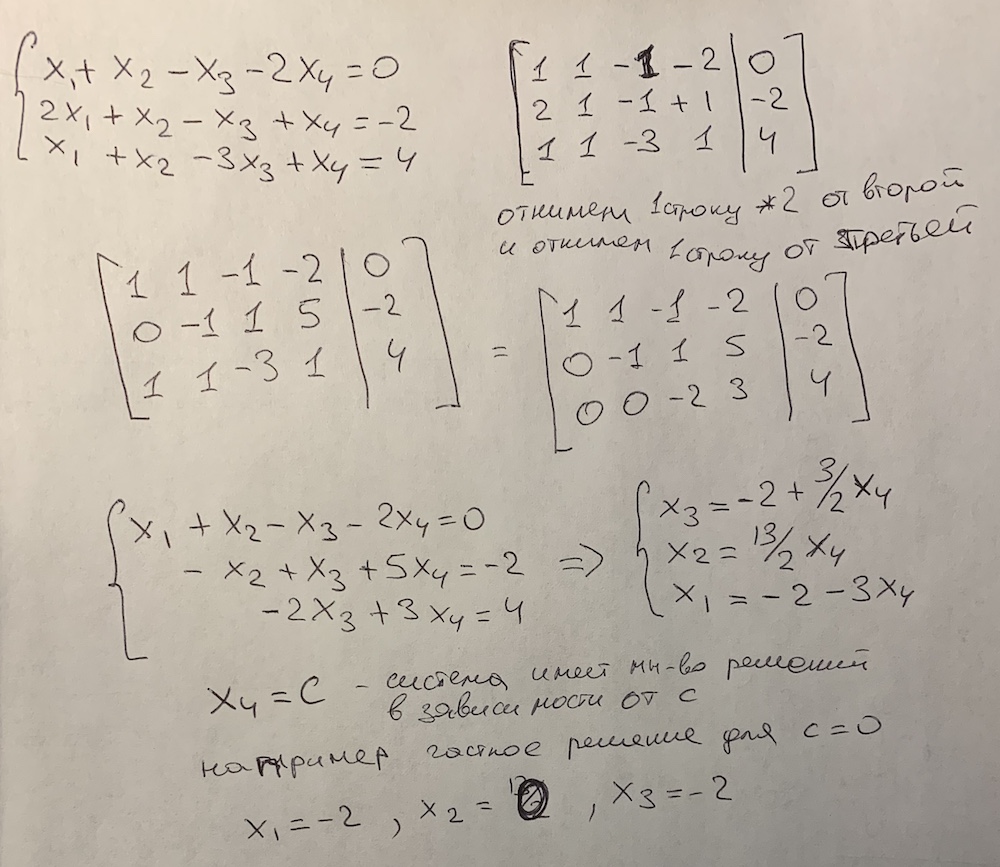 x₁ + x₂ − x₃ − 2x₄ = 0
2x₁ + x₂ − x₃ + x₄ = −2
x₁ + x₂ − 3x₃ + x₄ = 4
1 1 −1 −2 | 0
2 1 −1 +1 | −2
1 1 −3 1 | 4
отнимем 1 строку *2 от второй
и отнимем 1 строку от третьей
1 1 −1 −2 | 0
0 −1 1 5 | −2
1 1 −3 1 | 4
=
1 1 −1 −2 | 0
0 −1 1 5 | −2
0 0 −2 3 | 4
x₁ + x₂ − x₃ − 2x₄ = 0
− x₂ + x₃ + 5x₄ = −2
−2x₃ + 3x₄ = 4
=>
x₃ = −2 + 3/2 x₄
x₂ = 13/2 x₄
x₁ = −2 − 3x₄
x₄ = C − система имеет мн-во решений
в зависимости от с
например частное решение для c = 0
x₁ = −2 , x₂ = 0 , x₃ = −2